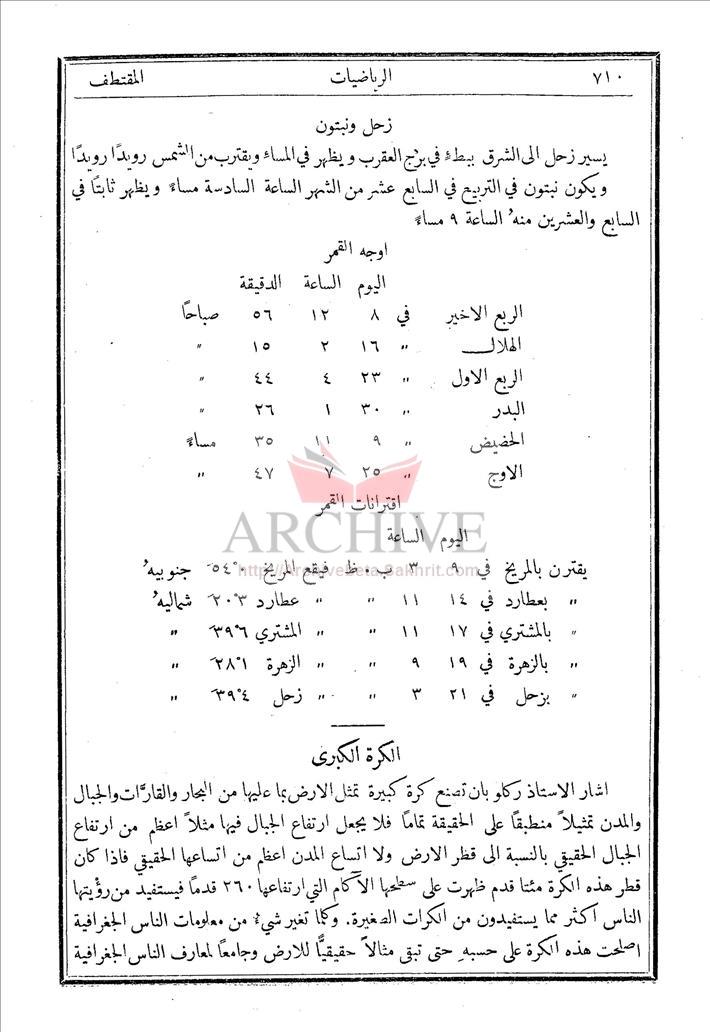 ٧١٠ الرياضيات المقتطف
زحل ونبتون
يسير زحل الى الشرق ببطءٍ في برج العقرب ويظهر في المساءِ ويقترب من الشمس رويدًا رويدًا
ويكون نبتون في التربيع في السابع عشر من الشهر الساعة السادسة مساءً ويظهر ثابتًا في
السابع والعشرين منهُ الساعة ٩ مساءً
اوجه القمر
اليوم الساعة الدقيقة
الربع الاخير في ٨ ١٢ ٥٦ صباحًا
الهلال " ١٦ ٢ ١٥ "
الربع الاول " ٢٣ ٤ ٤٤ "
البدر " ٣٠ ١ ٢٦ "
الحضيض " ٩ ١١ ٣٥ مساءً
الاوج " ٢٥ ٧ ٤٧ "
اقترانات القمر
ARCHIVE
اليوم الساعة
يقترن بالمريخ في ٩ ٣ ب. ظ فيقع المريخ جنوبيهُ
" بعطارد في ١٤ ١١ " " عطارد شماليهُ
" بالمشتري في ١٧ ١١ " " المشتري "
" بالزهرة في ١٩ ٩ " " الزهرة "
" بزحل في ٢١ ٣ " " زحل "
الكرة الكبرى
اشار الاستاذ ركلو بان تصنع كرة كبيرة تمثل الارض بما عليها من البحار والقارَّات والجبال
والمدن تمثيلاً منطبقًا على الحقيقة تمامًا فلا يجعل ارتفاع الجبال فيها مثلاً اعظم من ارتفاع
الجبال الحقيقي بالنسبة الى قطر الارض ولا اتساع المدن اعظم من اتساعها الحقيقي فاذا كان
قطر هذه الكرة مئتا قدم ظهرت على سطحها الآكام التي ارتفاعها ٢٦٠ قدمًا فيستفيد من رؤيتها
الناس اكثر مما يستفيدون من الكرات الصغيرة. وكما تغير شيءٌ من معلومات الناس الجغرافية
اصلحت هذه الكرة على حسبهِ حتى تبقى مثالاً حقيقيًّا للارض وجامعًا لمعارف الناس الجغرافية